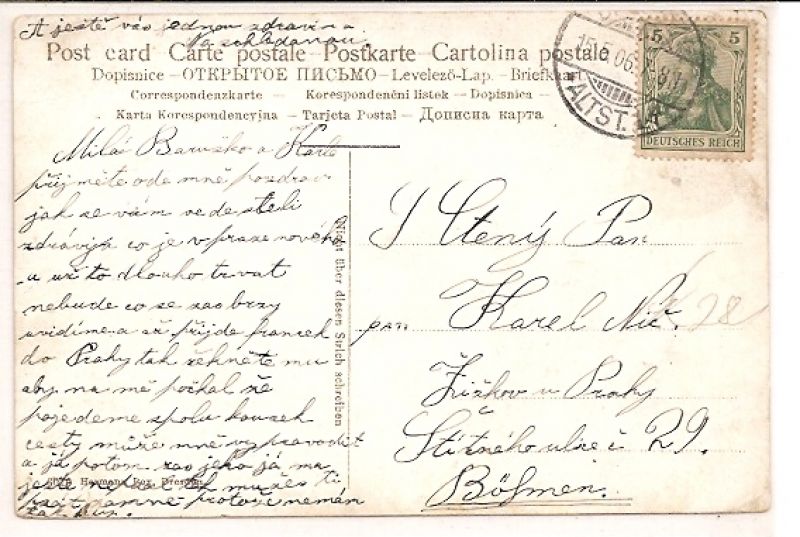 A ještě vás jednou zdravím a
Na schledanou.
Post card – Carte postale – Postkarte – Cartolina postale
Dopisnice – ОТКРЫТОЕ ПИСЬМО – Levelező-Lap. – Briefkaart
Correspondenzkarte – Korespondenční listek – Dopisnica –
Karta Korespondencyjna – Tarjeta Postal – Дописна карта
5 5
DEUTSCHES REICH
15.5.06.
ALTST.
Milá Baruško a Karle
přijměte ode mně pozdrav
jak se vám vede steli
zdráví a co je v praze nového
u už to dlouho trvat
nebude co se zas brzy
uvidíme a až přijde francek
do Prahy tak řekněte mu
aby na mě počkal že
pojedeme spolu kousek
cesty může mně vyprovodit
a já potom zas jeho já mu
ještě
protože nemám
Nicht über diesen Strich schreiben
Hermann Dresden
Ctený Pan
pan Karel Nič. 28
Žižkov u Prahy
Štítného ulice č 29.
Böhmen.